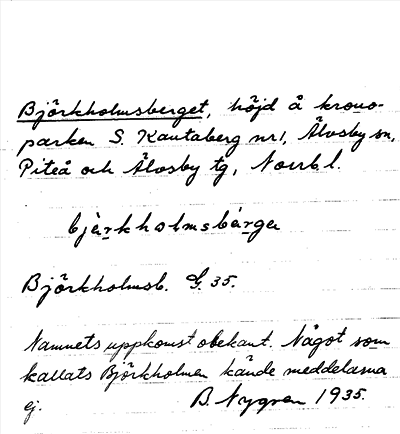 Björkholmsberget, höjd å krono-
parken S. Kautaberg nr1, Älvsby sn,
Piteå och Älvsby tg, Norrb. l.
bjä̀rkholmsbä̀rge
Björkholmsb. G. 35.
Namnets uppkomst obekant. Något som
kallats Björkholmen kände meddelarna
ej. B. Nygren 1935.